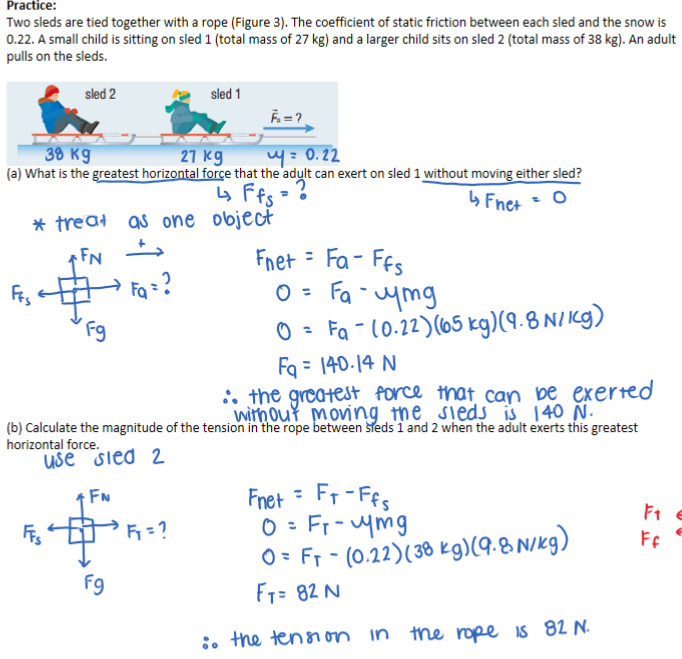 Practice:
Two sleds are tied together with a rope (Figure 3). The coefficient of static friction between each sled and the snow is
0.22. A small child is sitting on sled 1 (total mass of 27 kg) and a larger child sits on sled 2 (total mass of 38 kg). An adult
pulls on the sleds.
sled 2 sled 1
F⃗a = ?
38 kg 27 kg μ = 0.22
(a) What is the greatest horizontal force that the adult can exert on sled 1 without moving either sled?
↳ Ffs = ? ↳ Fnet = 0
* treat as one object
+
FN
Ffs Fa = ?
Fg
Fnet = Fa - Ffs
0 = Fa - μmg
0 = Fa - (0.22)(65 kg)(9.8 N/kg)
Fa = 140.14 N
∴ the greatest force that can be exerted
without moving the sleds is 140 N.
(b) Calculate the magnitude of the tension in the rope between sleds 1 and 2 when the adult exerts this greatest
horizontal force.
use sled 2
FN
Ffs FT = ?
Fg
Fnet = FT - Ffs
0 = FT - μmg
0 = FT - (0.22)(38 kg)(9.8 N/kg)
FT = 82 N
Ft
Ff
∴ the tension in the rope is 82 N.